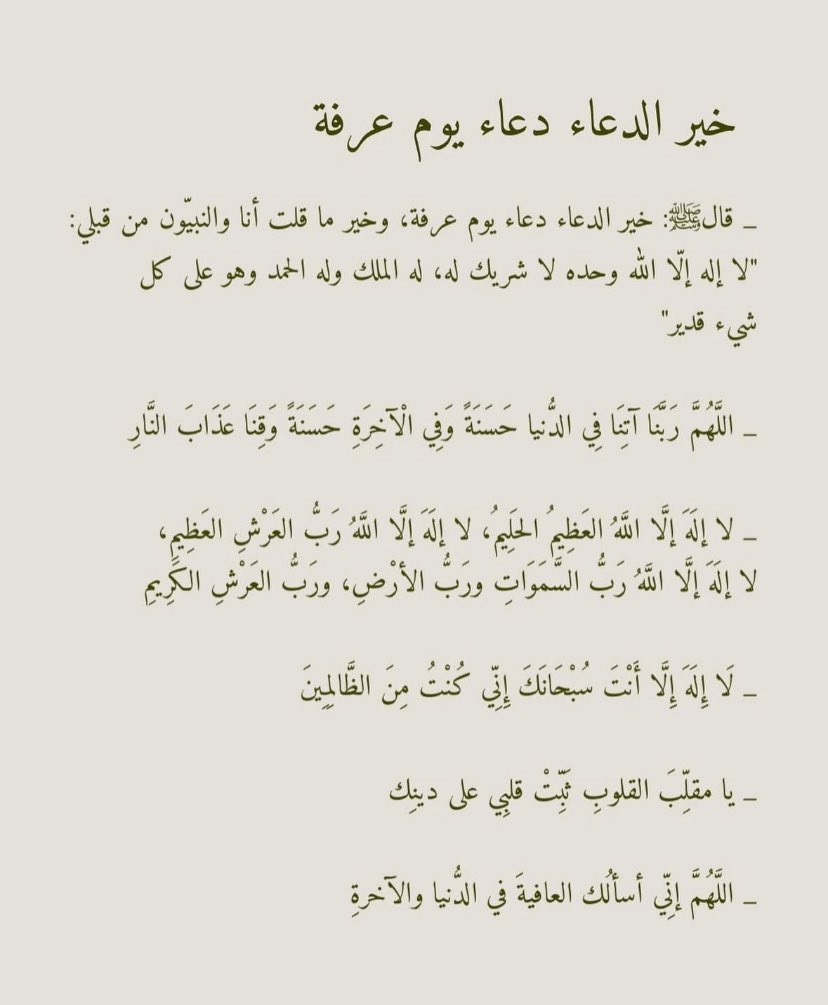 خير الدعاء دعاء يوم عرفة
_ قالﷺ: خير الدعاء دعاء يوم عرفة، وخير ما قلت أنا والنبيّون من قبلي:
"لا إله إلّا الله وحده لا شريك له، له الملك وله الحمد وهو على كل
شيء قدير"
_ اللَّهُمَّ رَبَّنَا آتِنَا فِي الدُّنيا حَسَنَةً وَفِي الْآخِرَةِ حَسَنَةً وَقِنَا عَذَابَ النَّارِ
_ لا إلَهَ إلَّا اللَّهُ العَظِيمُ الحَلِيمُ، لا إلَهَ إلَّا اللَّهُ رَبُّ العَرْشِ العَظِيمِ،
لا إلَهَ إلَّا اللَّهُ رَبُّ السَّمَوَاتِ ورَبُّ الأرْضِ، ورَبُّ العَرْشِ الكَرِيمِ
_ لَا إِلَهَ إِلَّا أَنْتَ سُبْحَانَكَ إِنِّي كُنْتُ مِنَ الظَّالِمِينَ
_ يا مقلِّبَ القلوبِ ثَبِّتْ قلبِي على دينِك
_ اللَّهُمَّ إنِّي أسألُك العافيةَ في الدُّنيا والآخرةِ